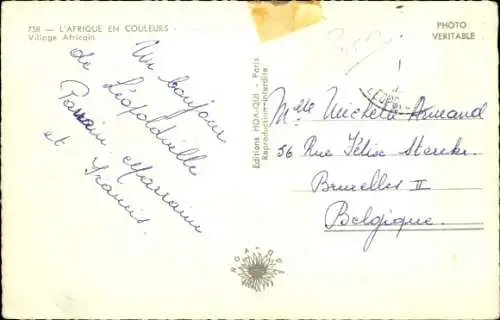 758 — L'AFRIQUE EN COULEURS
Village Africain
PHOTO
VERITABLE
Un bonjour
de Léopoldville
Parrain, Marraine
et Francis.
Editions HOA-QUI - Paris
Reproduction interdite
Melle Michele Armand
56 Rue Félix Sterckx
Bruxelles II
Belgique.
HOA-QUI